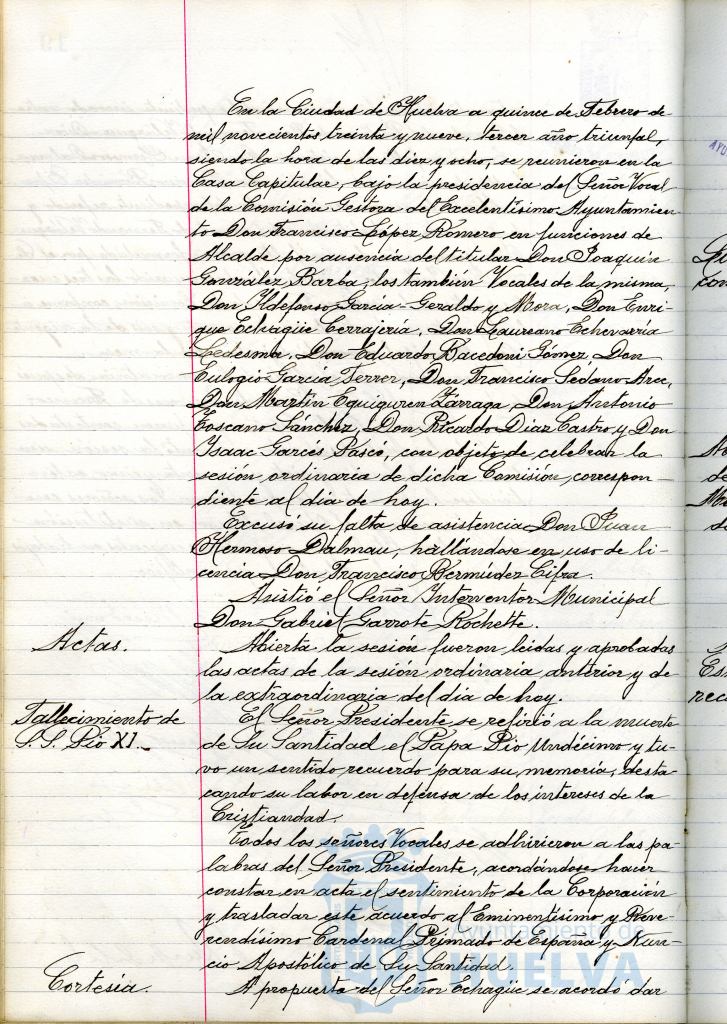 En la Ciudad de Huelva a quince de Febrero de
mil novecientos treinta y nueve, tercer año triunfal,
siendo la hora de las diez y ocho, se reunieron en la
Casa Capitular, bajo la presidencia del Señor Vocal
de la Comisión Gestora del Excelentísimo Ayuntamien-
to Don Francisco López Romero en funciones de
Alcalde por ausencia del titular Don Joaquín
González Barba, los también Vocales de la misma,
Don Ildefonso García-Geraldo y Mora, Don Enri-
que Echagüe Cerrajería, Don Laureano Echevarría
Ledesma, Don Eduardo Bacedoni Gómez, Don
Eulogio García Ferrer, Don Francisco Sedano Arce,
Don Martín Equiguren Zárraga, Don Antonio
Toscano Sánchez, Don Ricardo Díaz Castro y Don
Isaac Garcés Pascó, con objeto de celebrar la
sesión ordinaria de dicha Comisión, correspon-
diente al día de hoy.
Excusó su falta de asistencia Don Juan
Hermoso Dalmau, hallándose en uso de li-
cencia Don Francisco Bermúdez Cifra.
Asistió el Señor Interventor Municipal
Don Gabriel Garrote Rochette.
Actas.
Abierta la sesión fueron leidas y aprobadas
las actas de la sesión ordinaria anterior y de
la extraordinaria del día de hoy.
Fallecimiento de
S.S. Pío XI.
El Señor Presidente se refirió a la muerte
de Su Santidad el Papa Pío Undécimo y tu-
vo un sentido recuerdo para su memoria, desta-
cando su labor en defensa de los intereses de la
Cristiandad.
Todos los señores Vocales se adhirieron a las pa-
labras del Señor Presidente, acordándose hacer
constar en acta el sentimiento de la Corporación
y trasladar este acuerdo al Eminentísimo y Reve-
rendísimo Cardenal Primado de España y Nun-
cio Apostólico de Su Santidad.
Cortesía.
A propuesta del Señor Echagüe se acordó dar
Ayuntamiento de
HUELVA